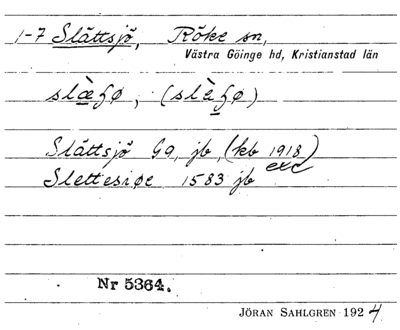 1-7 Slättsjö, Röke sn,
Västra Göinge hd, Kristianstad län
slæ̀ʒø, (slæ̀ʒø)
Slättsjö Ga, jb, (kb 1918)
exc
Slettesiøe 1583 jb
Nr 5364.
JÖRAN SAHLGREN 1924